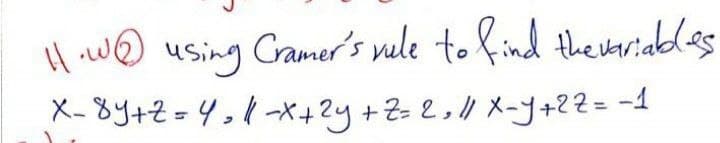 H.W② using Cramer's rule to find the variables
x-8y+z=4, // -x+2y+z=2, // x-y+2z=-1